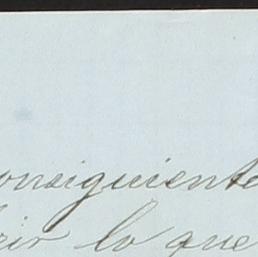 onsiguiente
rir lo que